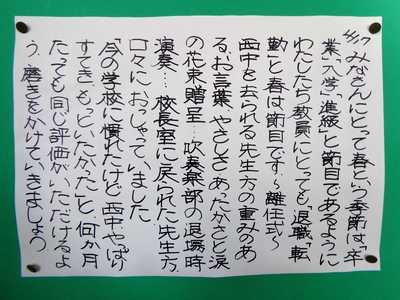 4/7 みなさんにとって春という季節は、「卒
業」「入学」「進級」と節目であるように
わたしたち教員にとっても「退職」「転
勤」と春は節目です。～離任式～
西中を去られる先生方の重みのあ
る、お言葉、やさしさ、あったかさと涙
の花束贈呈…吹奏楽部の退場時
演奏… 校長室に戻られた先生方、
口々におっしゃっていました
「今の学校に慣れたけど、西中、やっぱり
すてき、もどりたかった」と、何か月
たっても同じ評価がいただけるよ
う、磨きをかけていきましょう